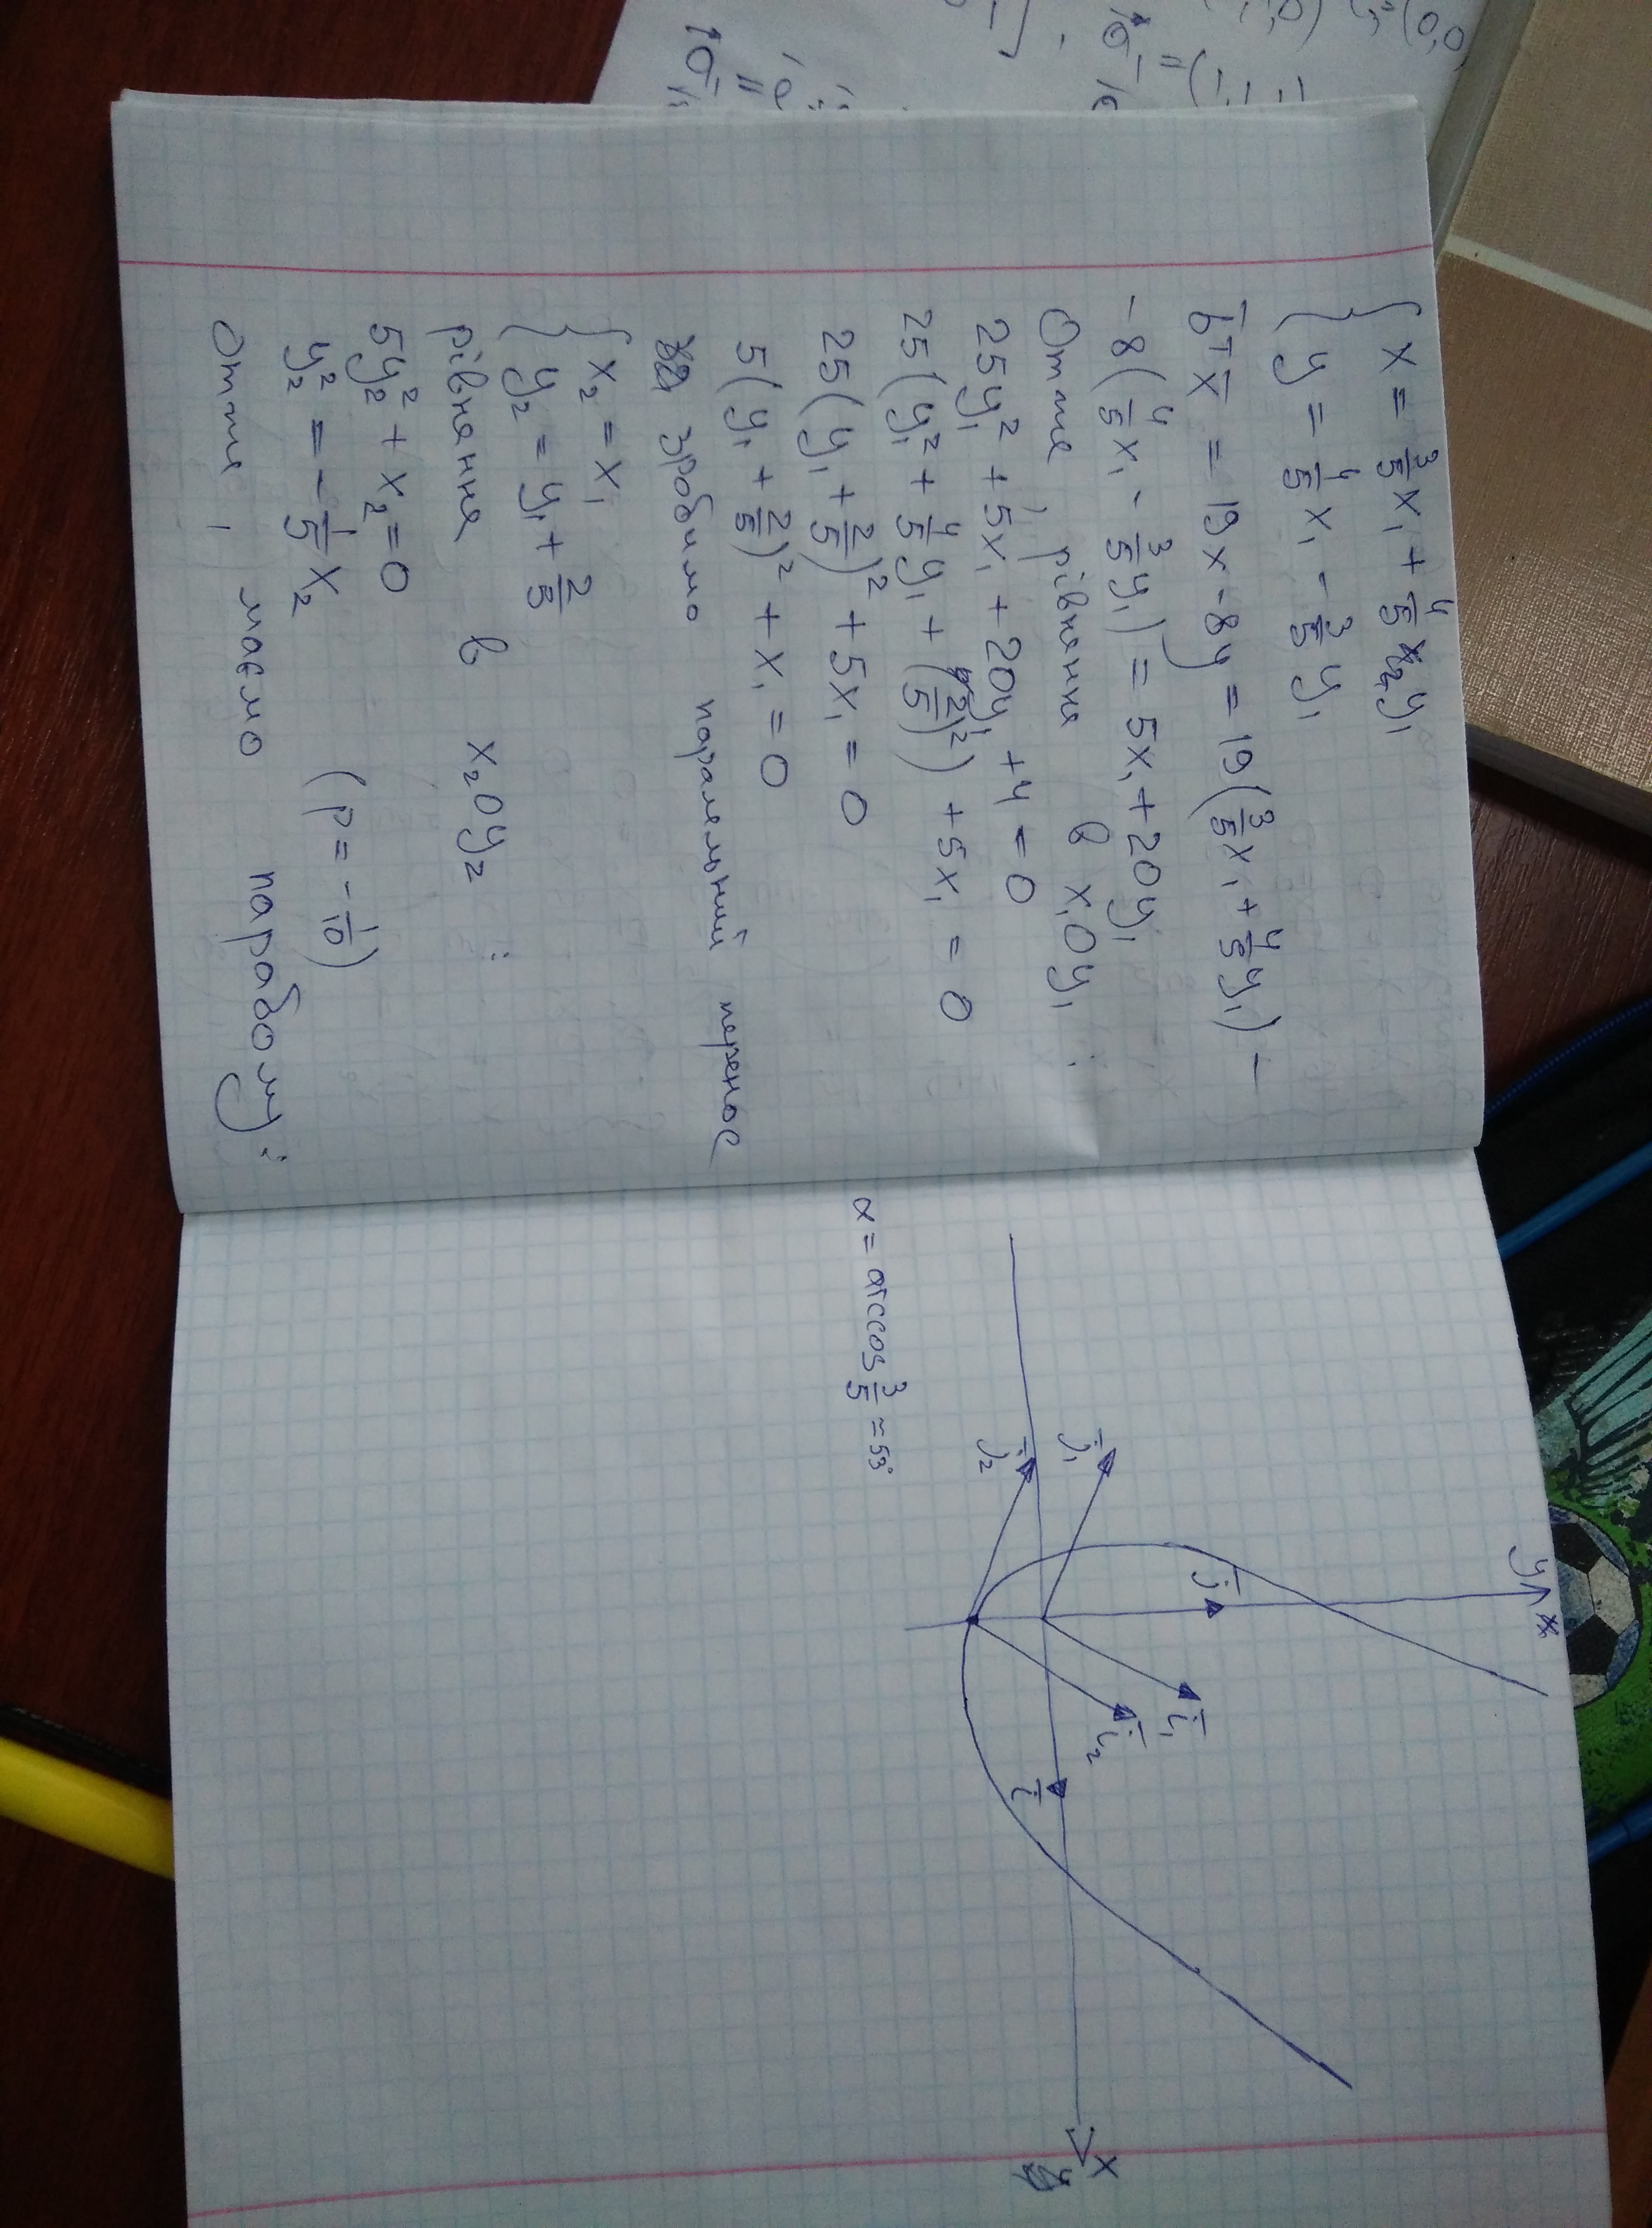 { x = 3/5 x₁ + 4/5 y₁
{ y = 4/5 x₁ - 3/5 y₁
b̄ᵀx̄ = 19x - 8y = 19(3/5 x₁ + 4/5 y₁) -
- 8(4/5 x₁ - 3/5 y₁) = 5x₁ + 20y₁
Отже, рівняння в x₁Oy₁:
25y₁² + 5x₁ + 20y₁ + 4 = 0
25(y₁² + 4/5 y₁ + (2/5)²) + 5x₁ = 0
25(y₁ + 2/5)² + 5x₁ = 0
5(y₁ + 2/5)² + x₁ = 0
зробимо паралельний перенос
{ x₂ = x₁
{ y₂ = y₁ + 2/5
рівняння в x₂Oy₂:
5y₂² + x₂ = 0
y₂² = - 1/5 x₂ (p = - 1/10)
Отже, маємо параболу:
y
x
j̄
j̄₁
ī₁
ī₂
j̄₂
ī
α = arccos 3/5 ≈ 53°